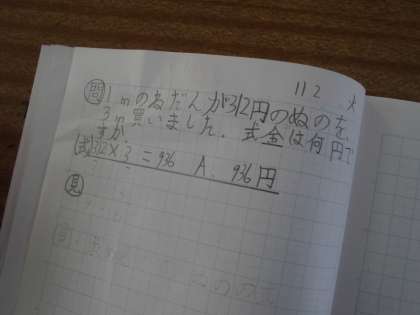 11 2 火
問 1mのねだんが312円のぬのを
3m買いました。式金は何円で
すか。
式 312×3=936 A. 936円
見